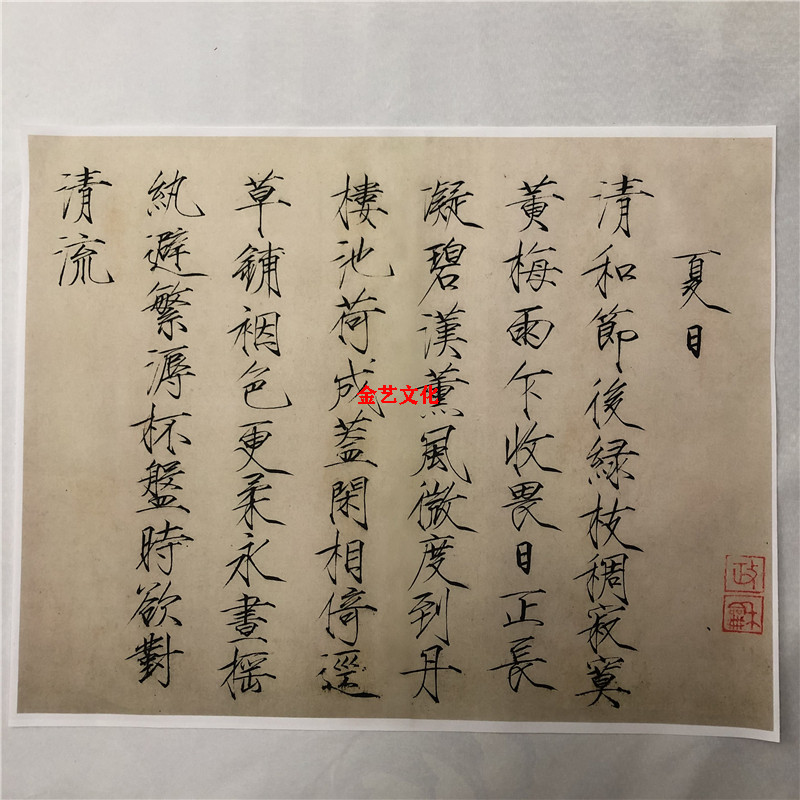 夏日
清和節後緑枝稠寂寞
黄梅雨乍收畏日正長
凝碧漢薰風微度到丹
樓池荷成蓋閑相倚逕
草鋪裀色更柔永晝搖
紈避繁溽杯盤時欲對
清流
政
龢
金艺文化